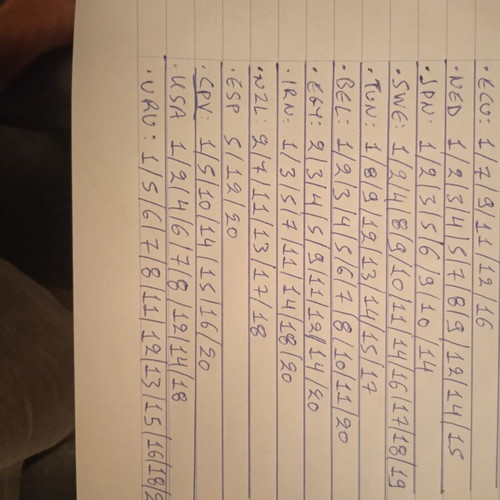 · ECU: 1/7/9/11/12/16
· NED 1/2/3/4/5/7/8/9/12/14/15
· JPN: 1/2/3/5/6/9/10/14
· SWE: 1/2/4/8/9/10/11/14/16/17/18/19
· TUN: 1/8/9/12/13/14/15/17
· BEL: 1/2/3/4/5/6/7/8/10/11/20
· EGY: 2/3/4/5/9/14/12/14/20
· IRN: 1/3/5/7/11/14/18/20
· NZL: 2/7/11/13/17/18
· ESP 5/19/20
· CPV: 1/5/10/14/15/16/20
· USA 1/2/4/6/7/8/12/14/18
· URU: 1/5/6/7/8/11/12/13/15/16/18/